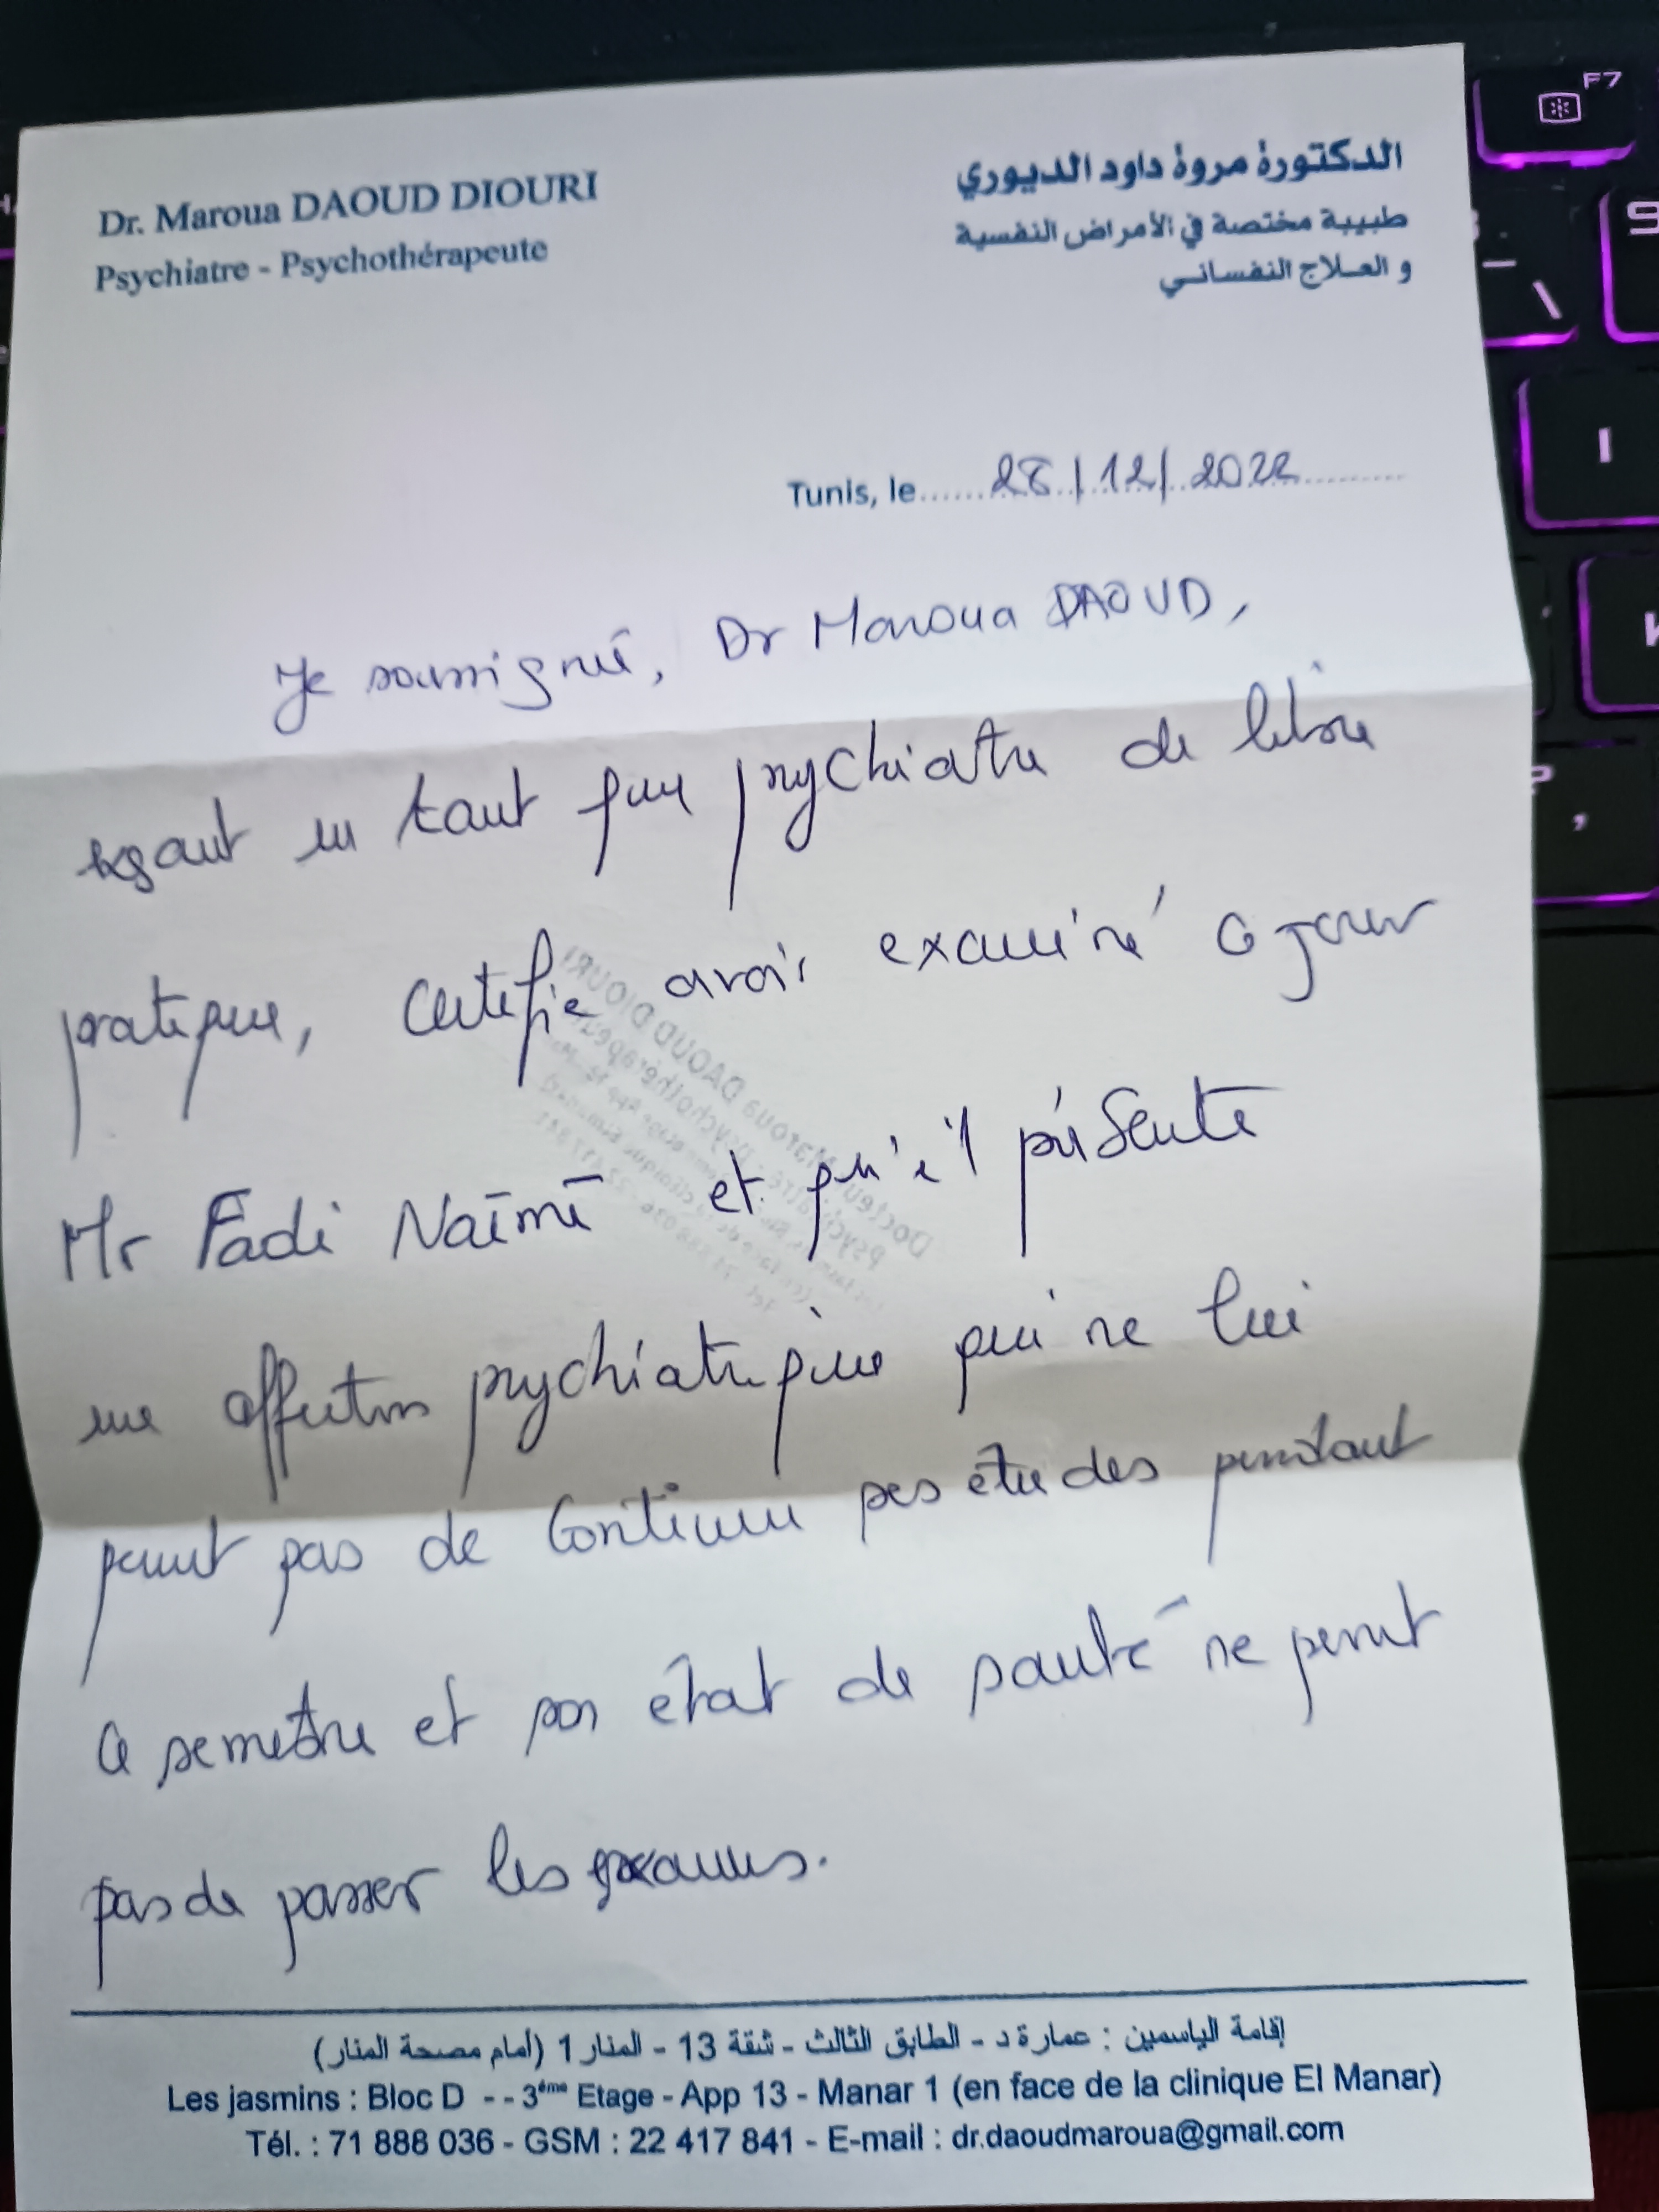 Dr. Maroua DAOUD DIOURI
Psychiatre - Psychothérapeute
الدكتورة مروة داود الديوري
طبيبة مختصة في الأمراض النفسية
و العلاج النفساني
Tunis, le...... 28/12/2022
Je soussigné, Dr Maroua DAOUD,
en tant que psychiatre de libre
pratique, certifie avoir examiné ce jour
Mr Fadi Naïmi et qu'il présente
une affection psychiatrique qui ne lui
permet pas de continuer ses études pendant
ce semestre et son état de santé ne permet
pas de passer les examens.
إقامة الياسمين : عمارة د - الطابق الثالث - شقة 13 - المنار 1 (أمام مصحة المنار)
Les jasmins : Bloc D - - 3ème Etage - App 13 - Manar 1 (en face de la clinique El Manar)
Tél. : 71 888 036 - GSM : 22 417 841 - E-mail : dr.daoudmaroua@gmail.com
F7